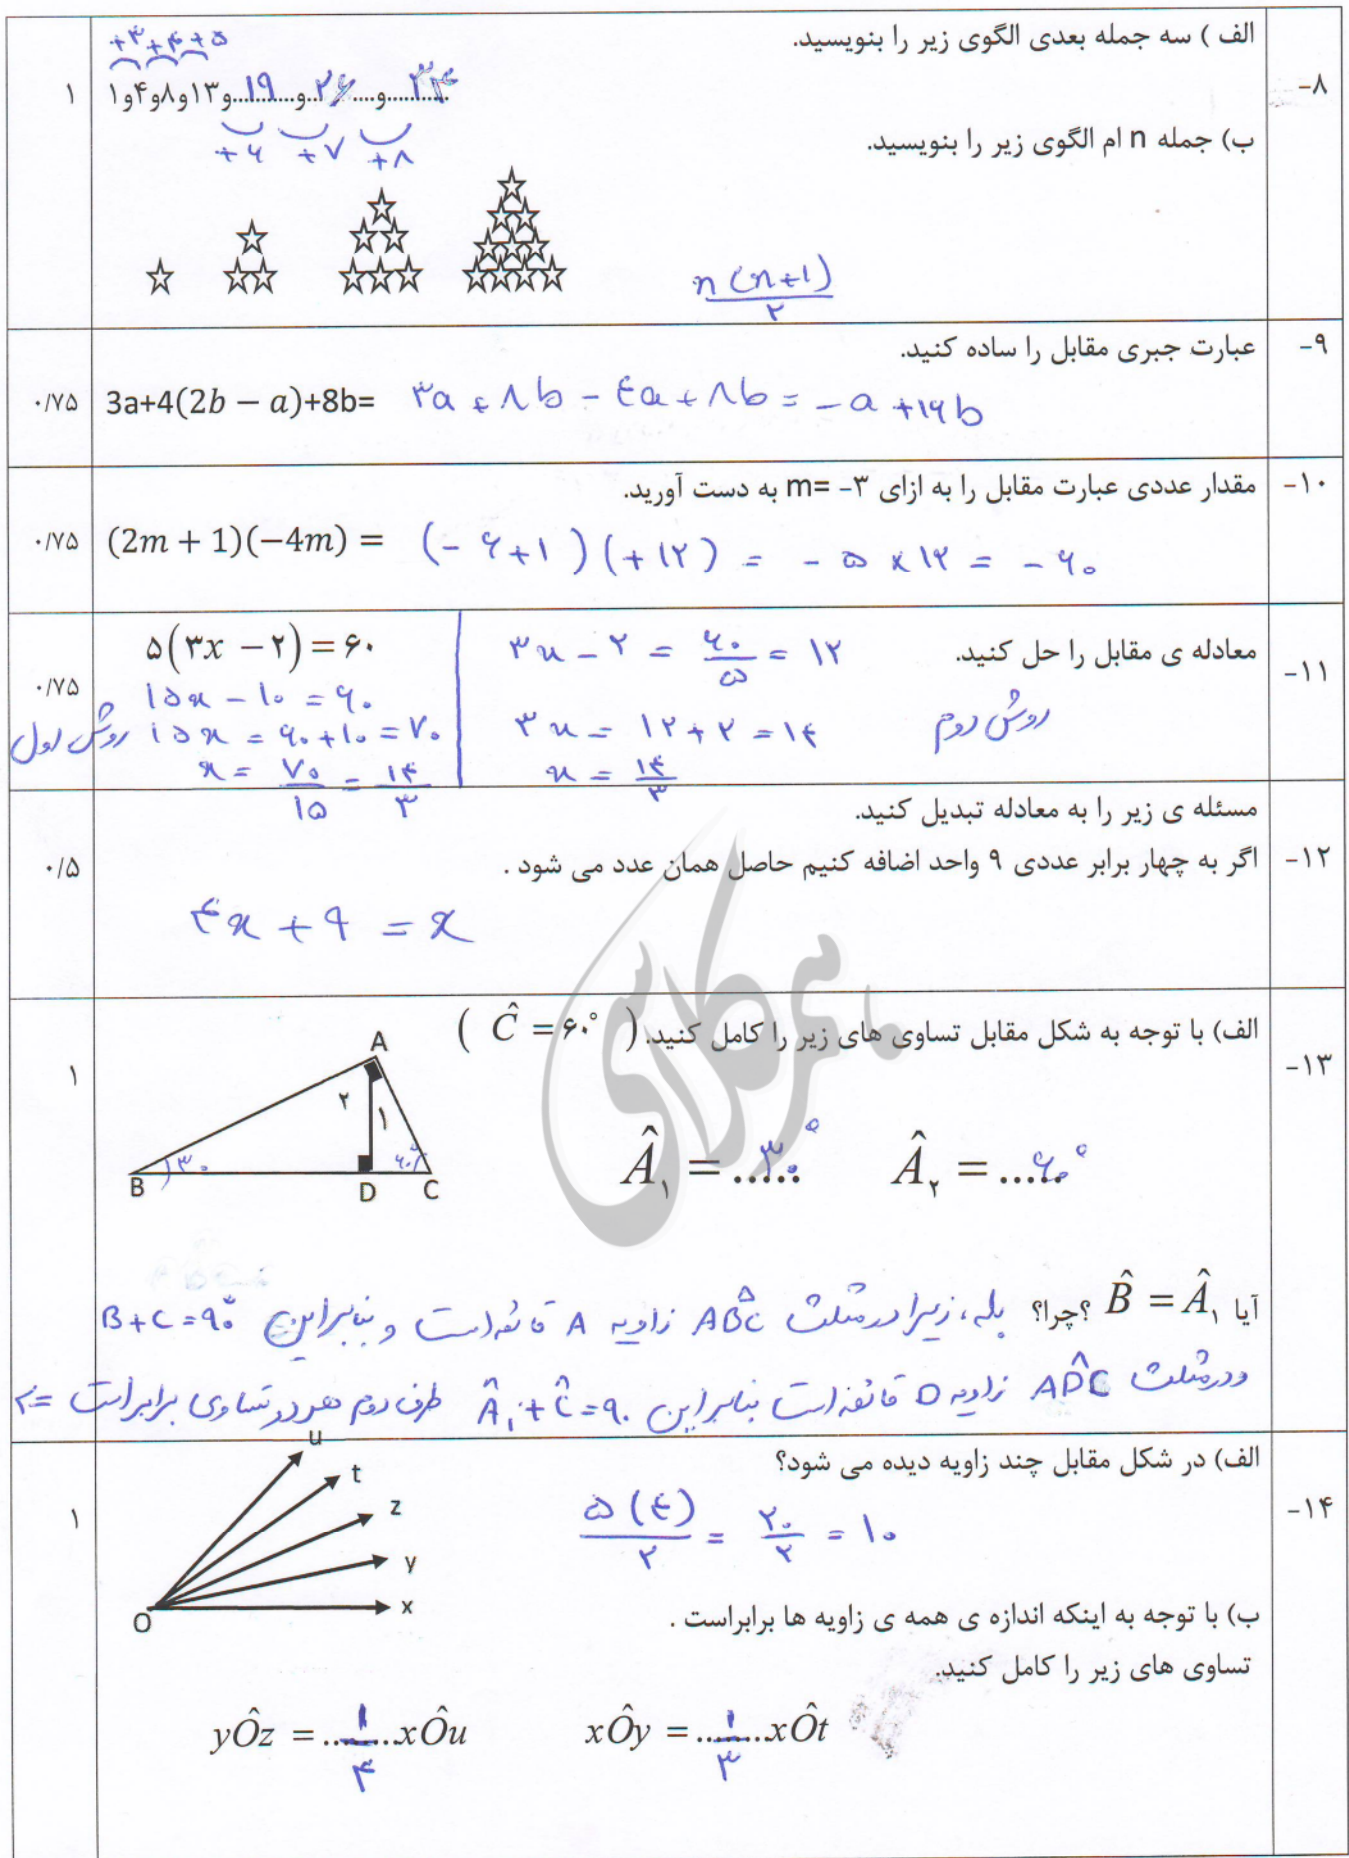 ۸- الف ) سه جمله بعدی الگوی زیر را بنویسید.
+۳ +۴ +۵
۱و۴و۸و۱۳و...۱۹...و...۲۶...و...۳۴... ۱
+۶ +۷ +۸
ب) جمله n ام الگوی زیر را بنویسید.
n(n+1)/۲
۹- عبارت جبری مقابل را ساده کنید.
3a+4(2b − a)+8b= ۳a + ۸b − ۴a + ۸b = −a + ۱۶b ۰/۷۵
۱۰- مقدار عددی عبارت مقابل را به ازای m= -۳ به دست آورید.
(2m + 1)(−4m) = (−۶+۱)(+۱۲) = −۵ × ۱۲ = −۶۰ ۰/۷۵
۱۱- معادله ی مقابل را حل کنید. ۰/۷۵
۵(۳x − ۲) = ۶۰
۱۵x − ۱۰ = ۶۰
۱۵x = ۶۰+۱۰ = ۷۰ روش اول
x = ۷۰/۱۵ = ۱۴/۳
۳x − ۲ = ۶۰/۵ = ۱۲
۳x = ۱۲+۲ = ۱۴ روش دوم
x = ۱۴/۳
مسئله ی زیر را به معادله تبدیل کنید.
۱۲- اگر به چهار برابر عددی ۹ واحد اضافه کنیم حاصل همان عدد می شود . ۰/۵
۴x + ۹ = x
۱۳- الف) با توجه به شکل مقابل تساوی های زیر را کامل کنید. ( Ĉ = ۶۰° ) ۱
A
۲ ۱
۳۰ ۶۰°
B D C
Â۱ = ..۳۰°.. Â۲ = ..۶۰°..
همکلاسی
آیا B̂ = Â۱ ؟چرا؟ بله، زیرا در مثلث ABC زاویه A قائمه است و بنابراین B+C=۹۰°
و در مثلث ADC زاویه D قائمه است بنابراین Â۱+Ĉ=۹۰ طرف دوم هر دو تساوی برابر است
۱۴- الف) در شکل مقابل چند زاویه دیده می شود؟ ۱
u
t
z
y
x
O
۵(۴)/۲ = ۲۰/۲ = ۱۰
ب) با توجه به اینکه اندازه ی همه ی زاویه ها برابراست .
تساوی های زیر را کامل کنید.
xÔy = ...۱/۳...xÔt yÔz = ...۱/۴...xÔu